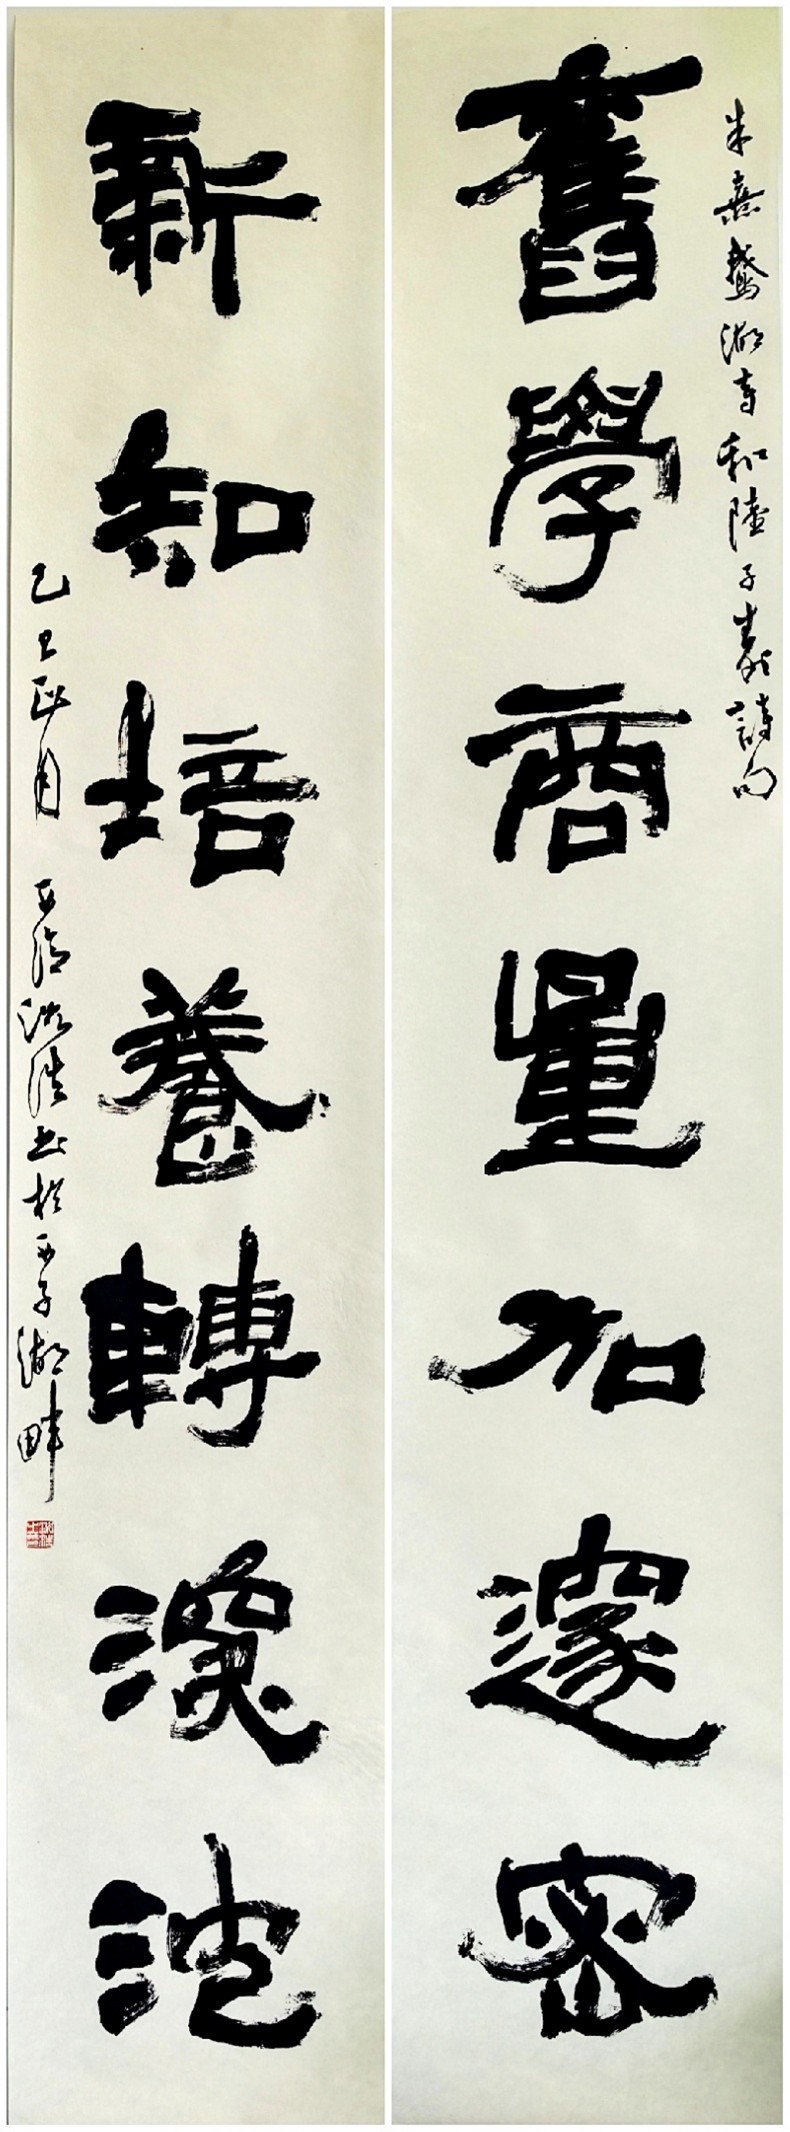 朱熹鵞湖寺和陸子壽詩句
舊學商量加邃密
新知培養轉深沈
乙巳正月 西泠沈浩书於西子湖畔